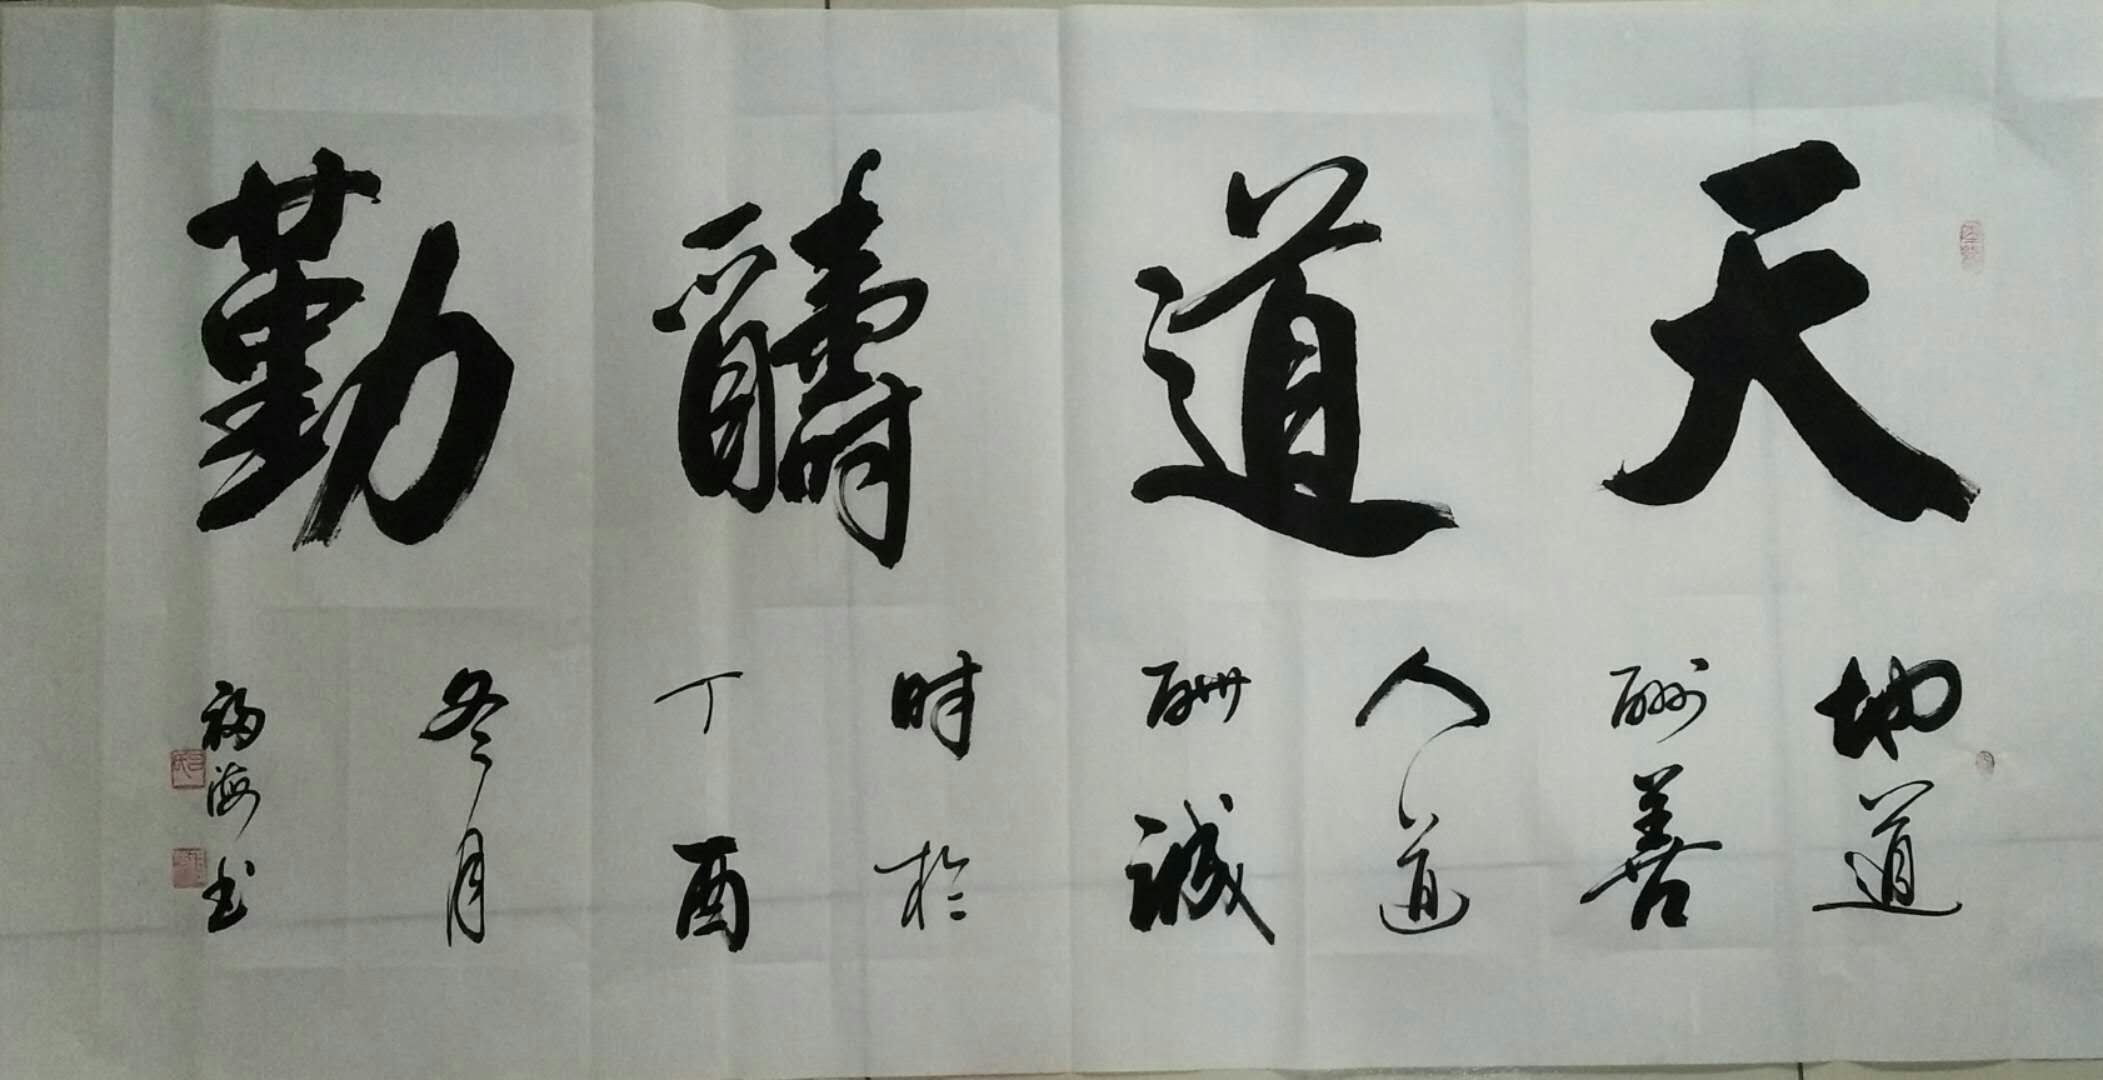 天道醻勤
地道
酬善
人道
酬誠
時於
丁酉
冬月
福海书